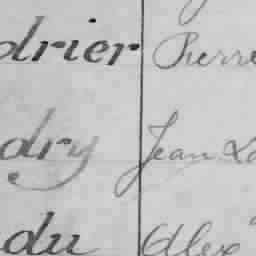 drier Pierre
dry Jean La
du Alex